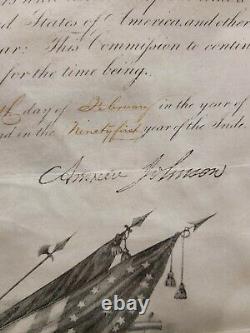 d States of America, and other
ar: This Commission to contin
for the time being.
th day of February in the year of
nd in the Ninety first year of the Inde
Andrew Johnson